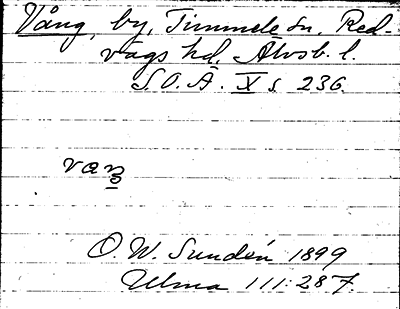 Vång, by, Timmele sn. Red-
vägs hd. Älvsb. l.
S.O.Ä. X s. 236.
O. W. Sundén 1899
Ulma 111:287.